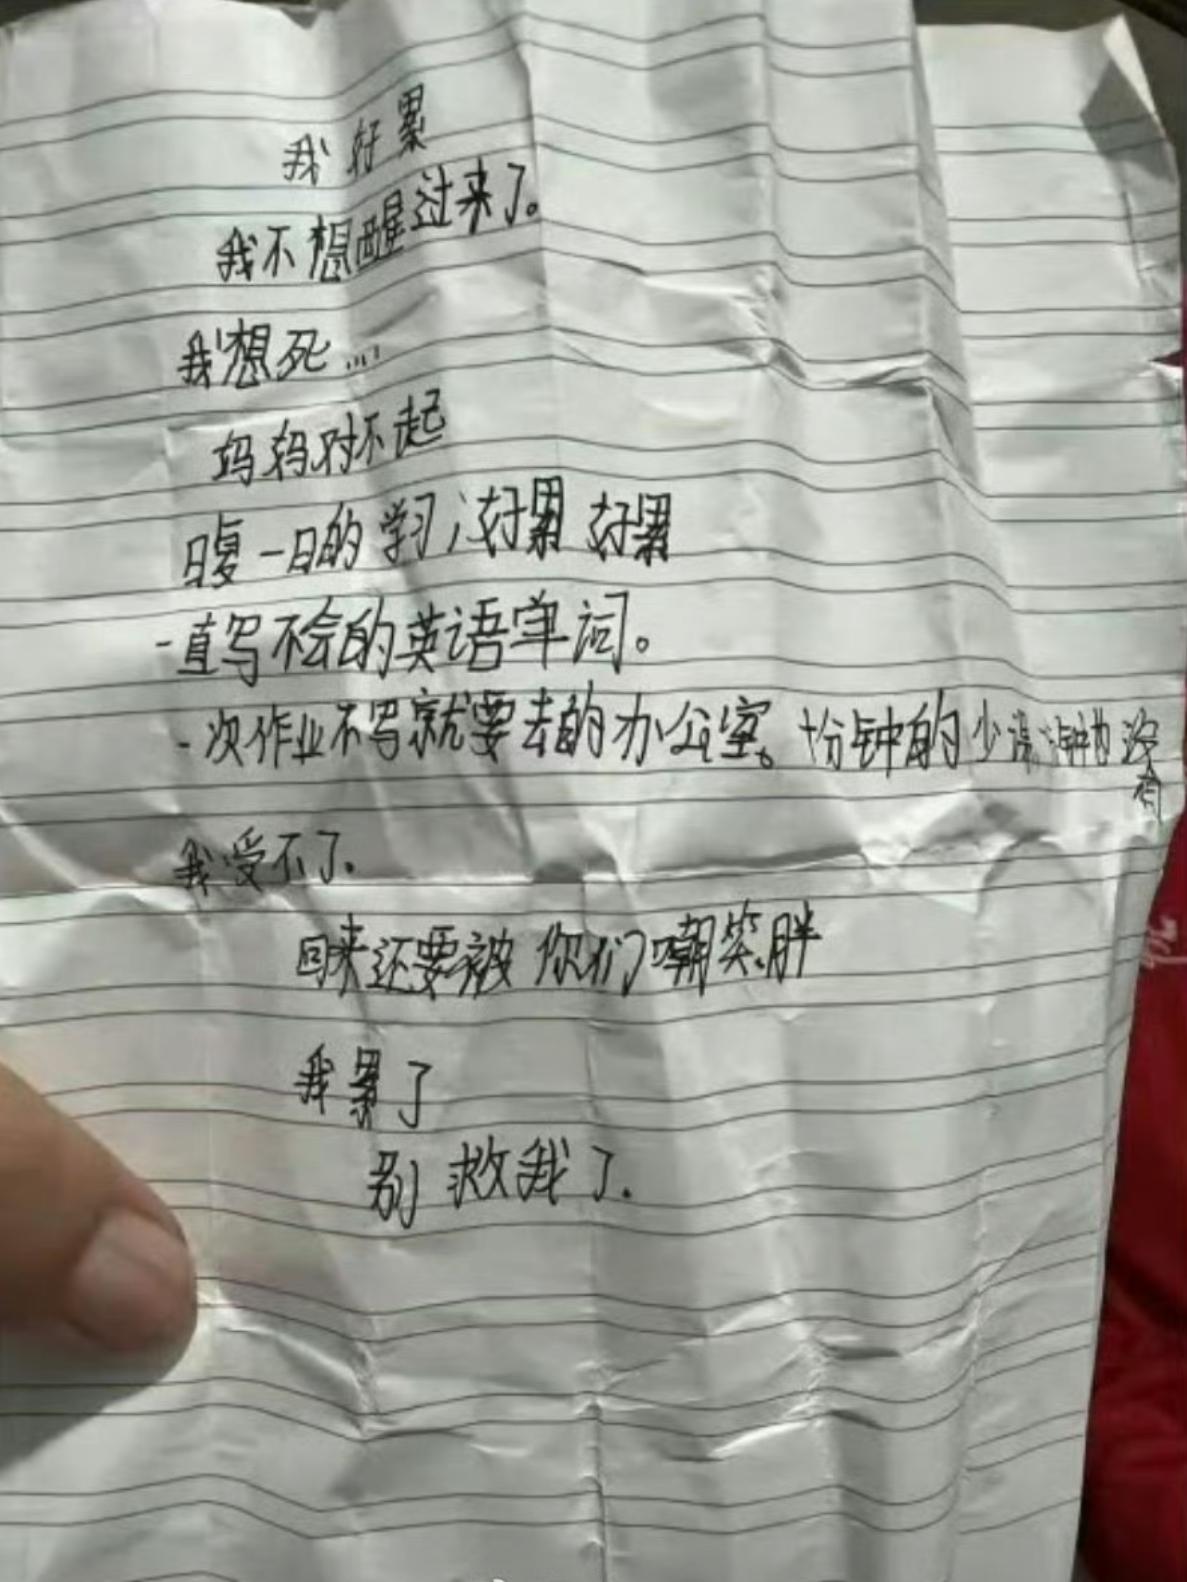 我好累
我不想醒过来了。
我想死...
妈妈对不起
日复一日的学习,好累 好累
一直写不会的英语单词。
一次作业不写就要去的办公室。十分钟的少 钟也没
有
我受不了.
回来还要被你们嘲笑胖
我累了
别救我了.